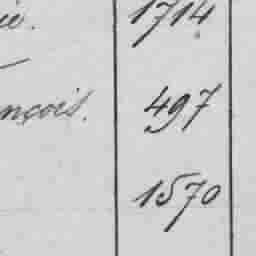 1714
nçois. 497
1570